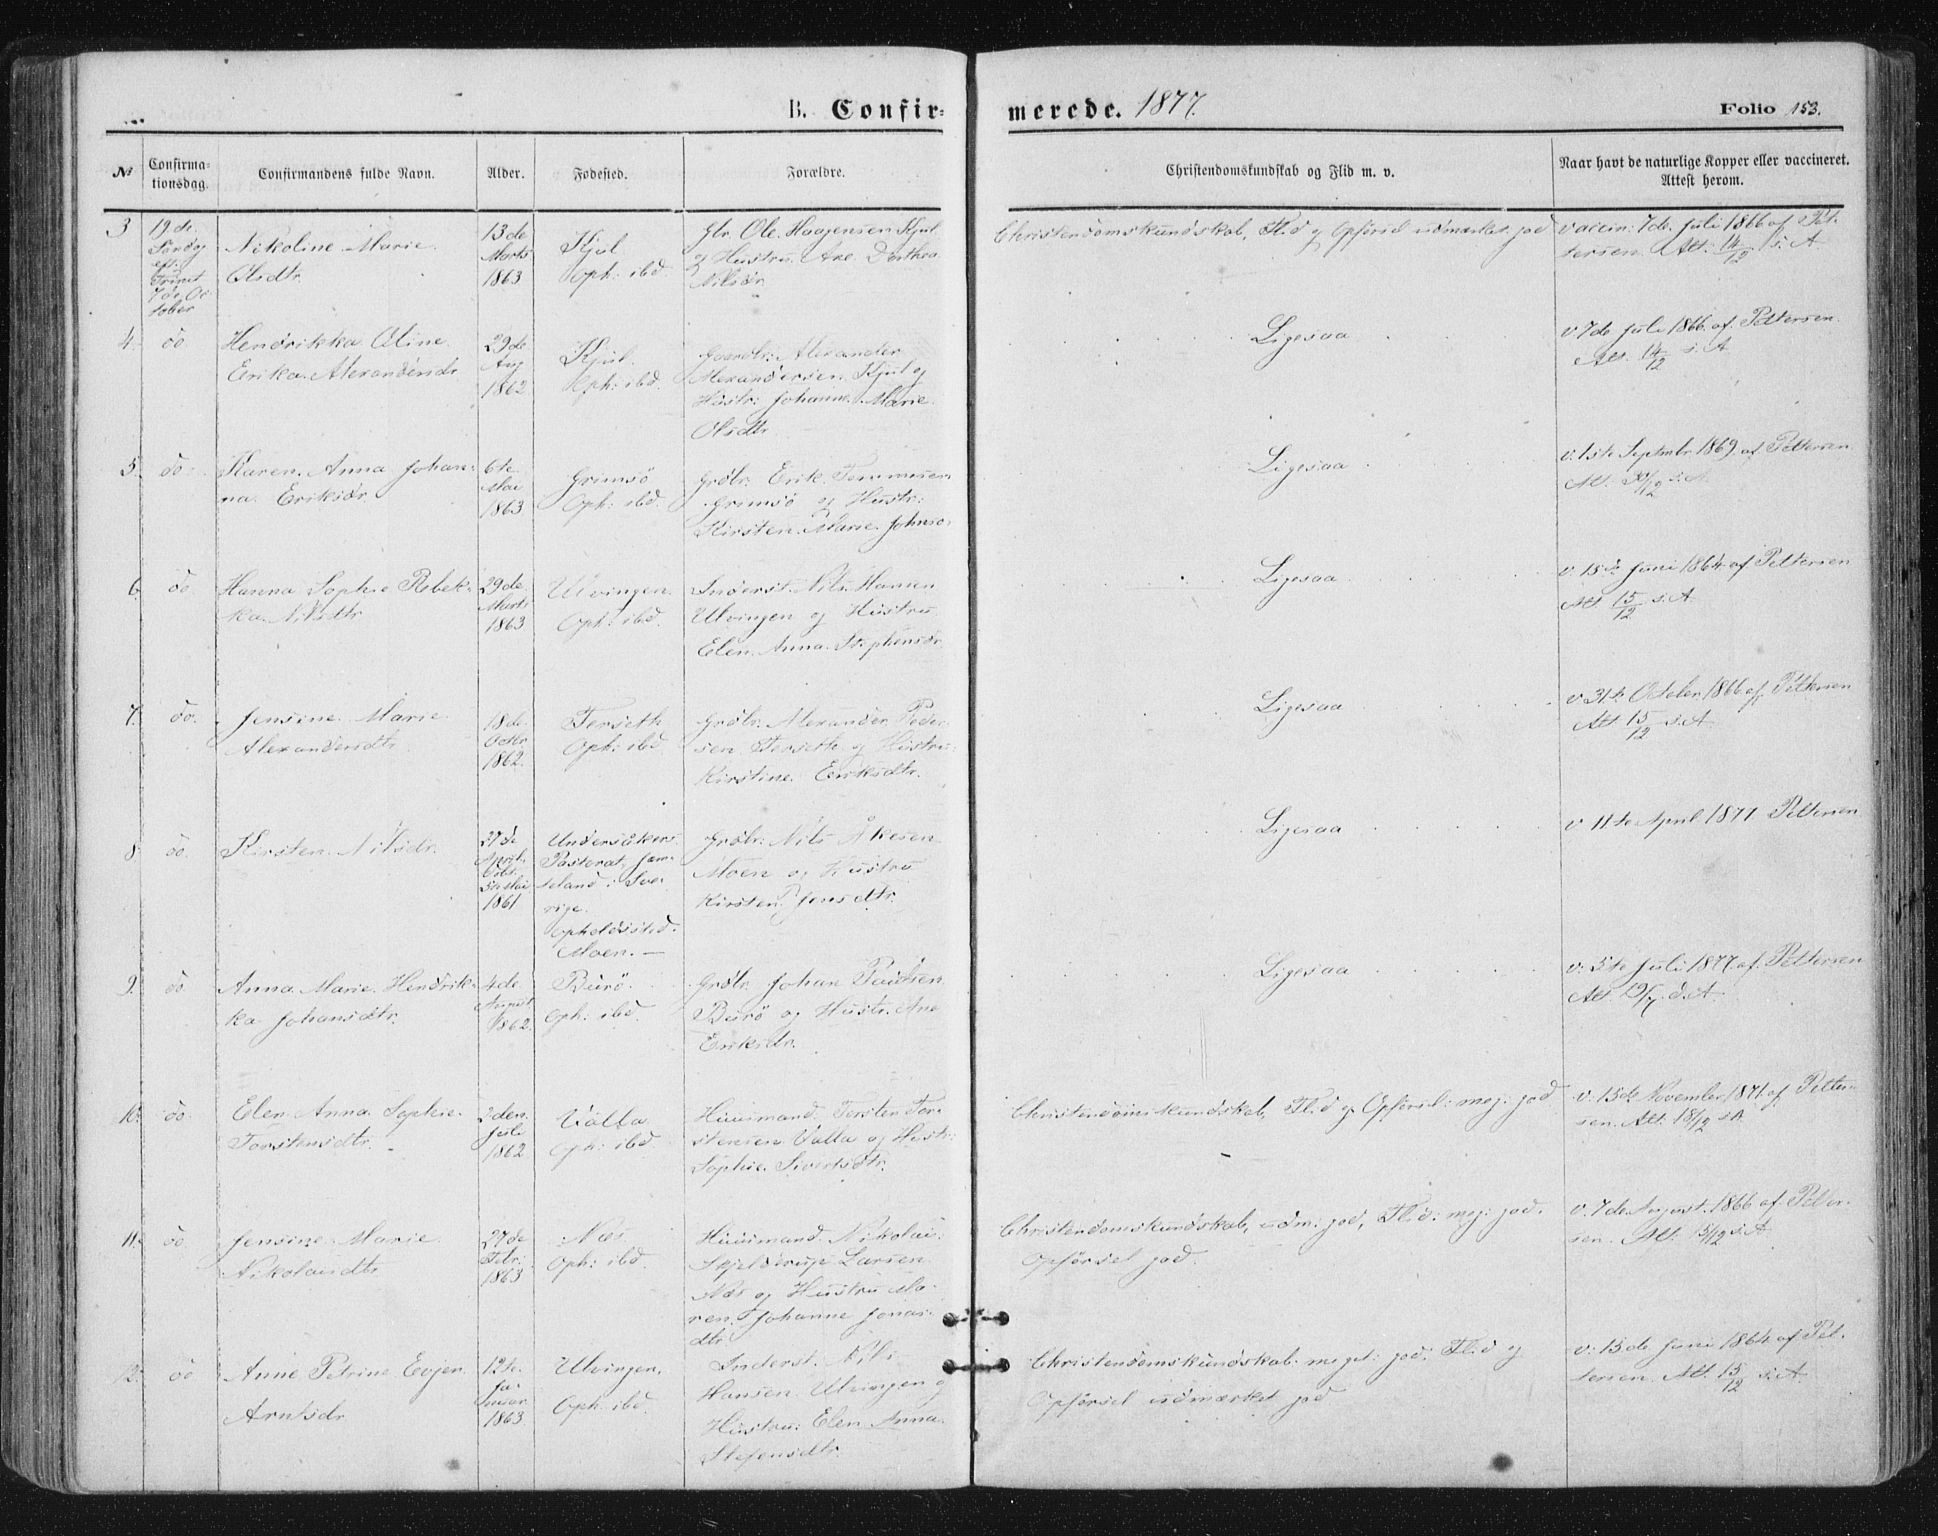 B. Confir-
merede. 1877.
Folio 153.
№
Confirma-
tionsdag.
Confirmandens fulde Navn.
Alder.
Fødested.
Forældre.
Christendomskundskab og Flid m. v.
Naar havt de naturlige Kopper eller vaccineret.
Attest herom.
3
19de
Sønd
eft.
Trinit
7de Oc
tober
Nikoline Marie
Olsdtr.
13de
Marts
1863
Kjul
Oph: ibd.
Ole Haagensen Kjul
og Hustru Ane Dorthea
Nilsdr
Christendomskundskab, Flid og Opførsel udmærket god
vaccin: 7de Juli 1866 af Pet-
tersen. Att: 14/12 s. A
4.
do
Hendrikka Oline
Erika Alexandersdr
29de
Aug
1862
Kjul.
Oph: ibd.
Gaardbr: Alexander
Alexandersen Kjul og
Hustr: Johanne Marie
Olsdtr.
Ligesaa
v. 7de Juli 1866 af Pettersen.
Att. 14/12 s. A
5.
do.
Karen Anna Johan-
na Eriksdr
6te
Mai
1863
Grimsø
Oph: ibd.
Grdbr. Erik Tommesen
Grimsø og Hustr:
Kirsten Marie Johnsd
Ligesaa
v. 1ste Septmbr 1869 af Pettersen
Att: s. A.
6.
do
Hanna Sophie Rebek-
ka Nilsdtr
29de
Marts
1863
Ulvingen
Oph: ibd.
Inderst. Nils Hansen
Ulvingen og Hustru
Elen Anna Stephensdr
Ligesaa.
v. 15de Juni 1864 af Pettersen
Att 15/12 s. A
7.
do.
Jensine Marie
Alexandersdtr
18de
Octbr
1862.
Forseth
Oph: ibd.
Grdbr. Alexander Peder-
sen Forseth og Hustru
Kirstine Eriksdtr.
Ligesaa
v. 31te October 1866 af Pettersen
Att 15/12 s. A
8
do.
Kirsten Nilsdr.
27de
April
Døbt
5te Mai
1861
Undersåkers
Pastorat, Jæm-
teland i Sve-
rige.
Opholdssted.
Moen. —
Grdbr. Nils Åkesen
Moen og Hustru
Kirsten Jonsdtr.
Ligesaa
v 11te April 1877 Pettersen
9.
do
Anna Marie Hendrik-
ka Johansdtr.
4de
August
1862.
Burø
Oph: ibd.
Grdbr. Johan Paulsen
Burø og Hustr. Ane
Eriksdr.
Ligesaa
v: 5te Juli 1877 af Pettersen
Att. 19/7 s. A
10.
do.
Elen Anna Sophie
Torstensdtr.
2den
Juli
1862
Valla
Oph: ibd.
Huusmand Torsten Tor-
stensen Valla og Hustr:
Sophie Sivertsdtr.
Christendomskundskab, Flid og Opførsel: meg: god
v. 15de November 1871 af Petter-
sen. Att. 18/12 s. A.
11.
do
Jensine Marie
Nikolaisdtr
27de
Febr.
1863
Næs
Oph: ibd.
Huusmand Nikolai
Skjelderup Larsen
Næs og Hustru Ma-
ren Johanne Jonas-
dtr.
Christendomskundskab, udm: god, Flid: meg: god.
Opførsel god.
v. 7de August 1866 af Petter-
sen. Att: 15/12 s. A
12.
do
Anne Petrine Evjen
Arntsdr
12te
Ja-
nuar
1863
Ulvingen.
Oph: ibd.
Inderst. Nils
Hansen Ulvingen og
Hustru: Elen Anna
Stefensdtr.
Christendomskundskab: meget: god. Flid og
Opførsel udmærket god
v: 15de Juni 1864 af Pet-
tersen. Att. 15/12 s. A.